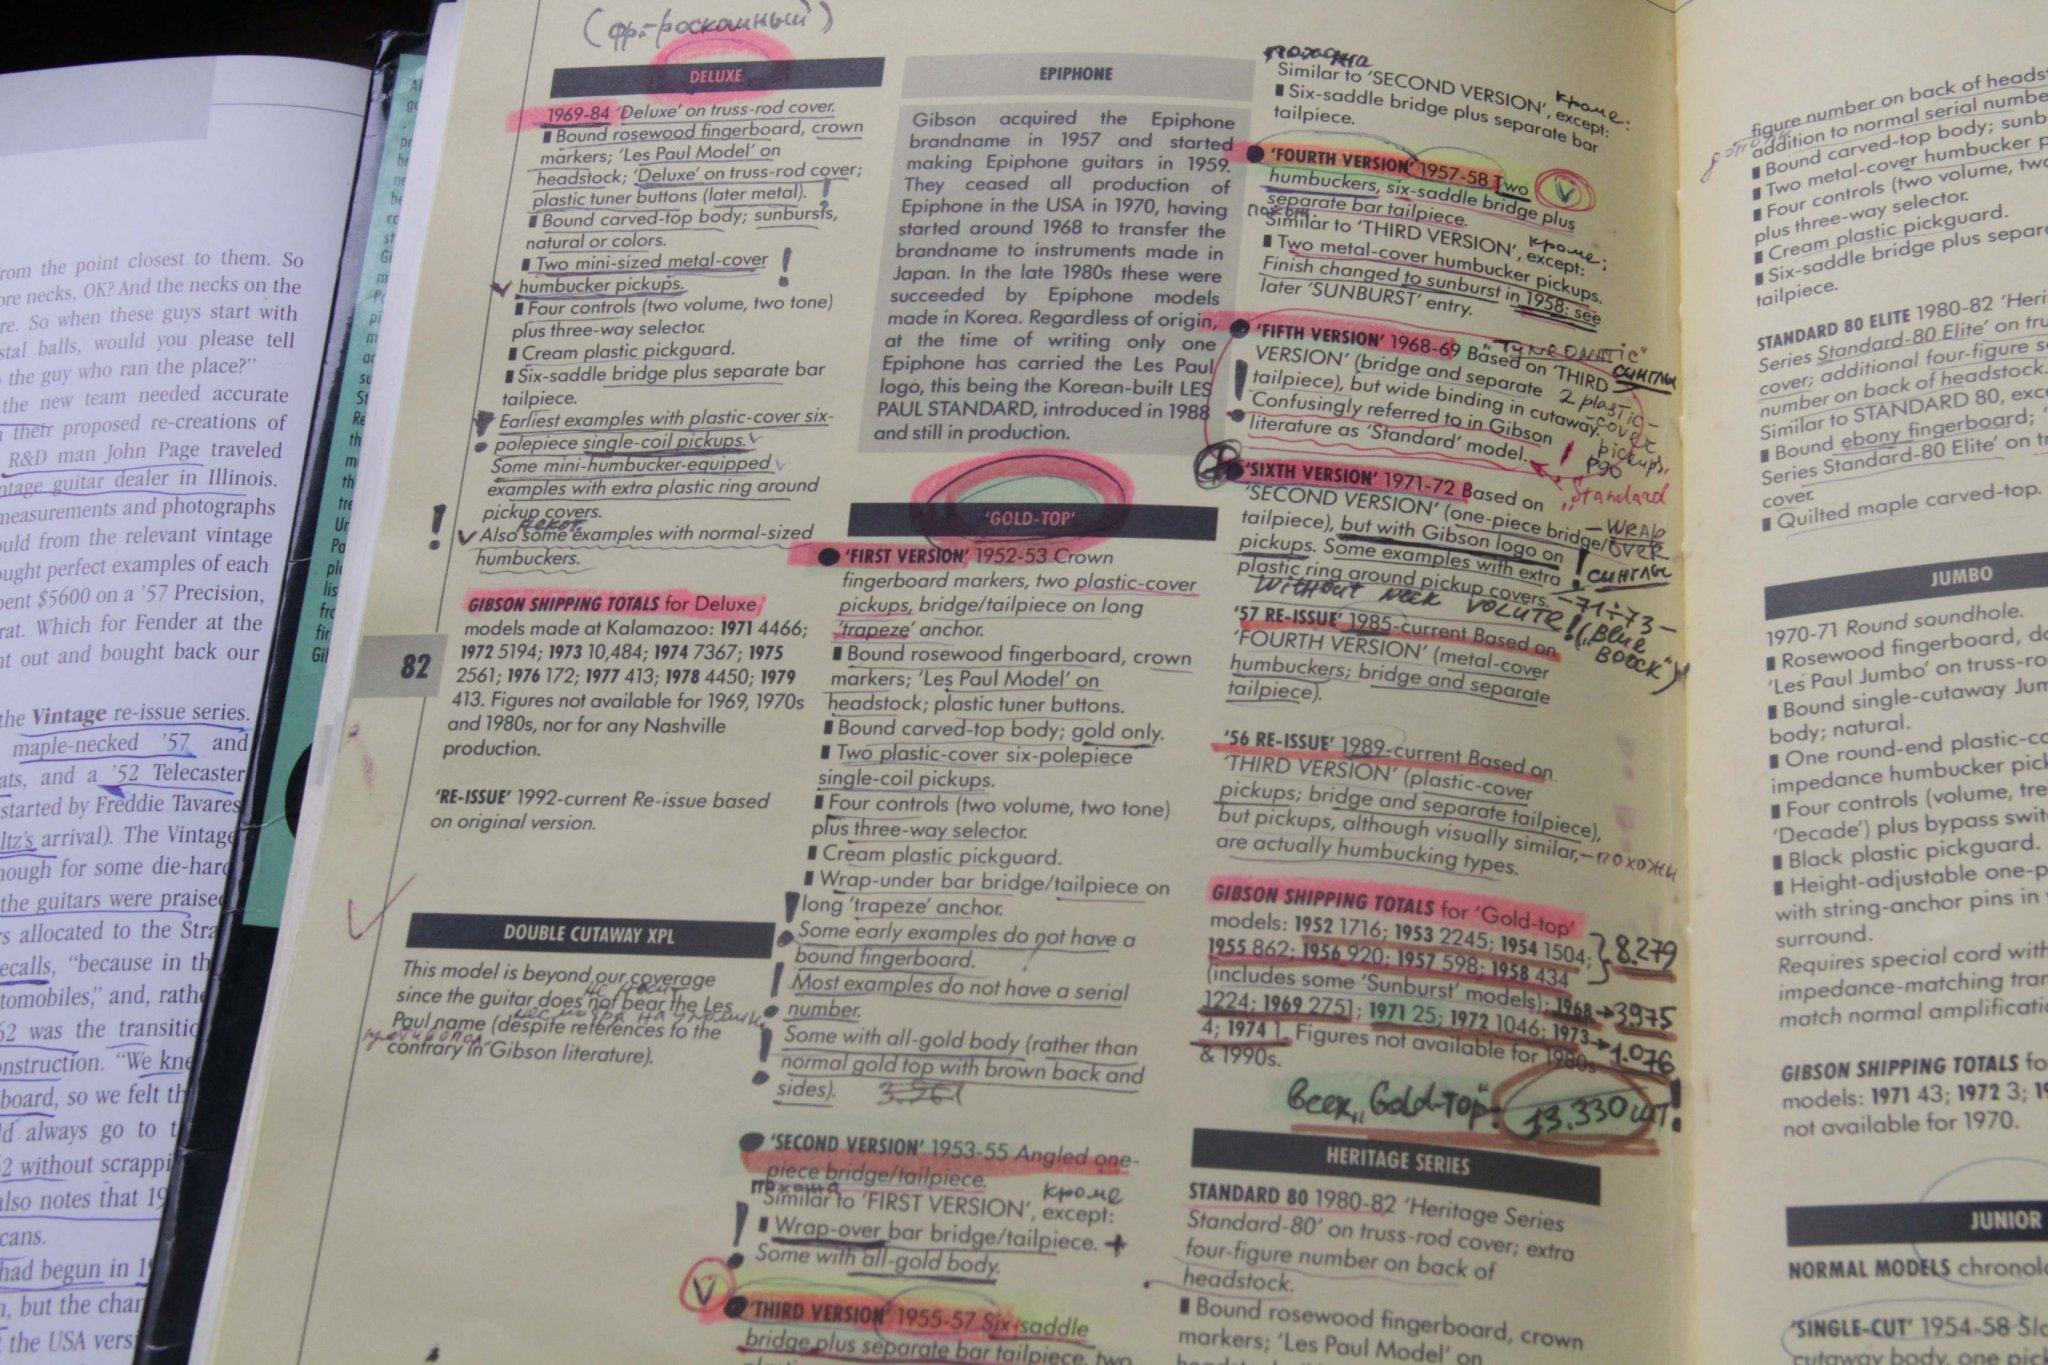 from the point closest to them. So
ore necks, OK? And the necks on the
re. So when these guys start with
stal balls, would you please tell
the guy who ran the place?”
the new team needed accurate
their proposed re-creations of
R&D man John Page traveled
ntage guitar dealer in Illinois.
measurements and photographs
ould from the relevant vintage
ought perfect examples of each
pent $5600 on a ’57 Precision,
rat. Which for Fender at the
nt out and bought back our
the Vintage re-issue series.
maple-necked ’57 and
ats, and a ’52 Telecaster
started by Freddie Tavares
ltz’s arrival). The Vintage
nough for some die-hard
the guitars were praised
rs allocated to the Stra
recalls, “because in th
tomobiles,” and, rathe
62 was the transitio
onstruction. “We kne
board, so we felt th
ld always go to t
2 without scrappi
also notes that 19
cans.
had begun in 19
n, but the char
t the USA vers
82
(фр.-роскошный)
DELUXE
1969-84 ‘Deluxe’ on truss-rod cover.
▮ Bound rosewood fingerboard, crown
markers; ‘Les Paul Model’ on
headstock; ‘Deluxe’ on truss-rod cover;
plastic tuner buttons (later metal). !
▮ Bound carved-top body; sunbursts,
natural or colors.
▮ Two mini-sized metal-cover !
humbucker pickups.
▮ Four controls (two volume, two tone)
plus three-way selector.
▮ Cream plastic pickguard.
▮ Six-saddle bridge plus separate bar
tailpiece.
Earliest examples with plastic-cover six-
polepiece single-coil pickups.
Some mini-humbucker-equipped
examples with extra plastic ring around
pickup covers.
некот.
! Also some examples with normal-sized
humbuckers.
GIBSON SHIPPING TOTALS for Deluxe
models made at Kalamazoo: 1971 4466;
1972 5194; 1973 10,484; 1974 7367; 1975
2561; 1976 172; 1977 413; 1978 4450; 1979
413. Figures not available for 1969, 1970s
and 1980s, nor for any Nashville
production.
‘RE-ISSUE’ 1992-current Re-issue based
on original version.
DOUBLE CUTAWAY XPL
This model is beyond our coverage
since the guitar does not bear the Les
Paul name (despite references to the
contrary in Gibson literature).
EPIPHONE
Gibson acquired the Epiphone
brandname in 1957 and started
making Epiphone guitars in 1959.
They ceased all production of
Epiphone in the USA in 1970, having
started around 1968 to transfer the
brandname to instruments made in
Japan. In the late 1980s these were
succeeded by Epiphone models
made in Korea. Regardless of origin,
at the time of writing only one
Epiphone has carried the Les Paul
logo, this being the Korean-built LES
PAUL STANDARD, introduced in 1988
and still in production.
‘GOLD-TOP’
‘FIRST VERSION’ 1952-53 Crown
fingerboard markers, two plastic-cover
pickups, bridge/tailpiece on long
‘trapeze’ anchor.
▮ Bound rosewood fingerboard, crown
markers; ‘Les Paul Model’ on
headstock; plastic tuner buttons.
▮ Bound carved-top body; gold only.
▮ Two plastic-cover six-polepiece
single-coil pickups.
▮ Four controls (two volume, two tone)
plus three-way selector.
▮ Cream plastic pickguard.
▮ Wrap-under bar bridge/tailpiece on
long ‘trapeze’ anchor.
Some early examples do not have a
bound fingerboard.
Most examples do not have a serial
number.
Some with all-gold body (rather than
normal gold top with brown back and
sides).
‘SECOND VERSION’ 1953-55 Angled one-
piece bridge/tailpiece.
похожа кроме
Similar to ‘FIRST VERSION’, except:
▮ Wrap-over bar bridge/tailpiece. +
Some with all-gold body.
‘THIRD VERSION’ 1955-57 Six-saddle
bridge plus separate bar tailpiece, two
похожа
Similar to ‘SECOND VERSION’, except:
кроме:
▮ Six-saddle bridge plus separate bar
tailpiece.
‘FOURTH VERSION’ 1957-58 Two
humbuckers, six-saddle bridge plus
separate bar tailpiece.
Similar to ‘THIRD VERSION’, except:
кроме:
▮ Two metal-cover humbucker pickups.
Finish changed to sunburst in 1958: see
later ‘SUNBURST’ entry.
‘FIFTH VERSION’ 1968-69 Based on ‘THIRD
VERSION’ (bridge and separate
tailpiece), but wide binding in cutaway.
Confusingly referred to in Gibson
literature as ‘Standard’ model.
синглы
2 plastic-
cover
pickups,
P90
„Standard
‘SIXTH VERSION’ 1971-72 Based on
‘SECOND VERSION’ (one-piece bridge/
tailpiece), but with Gibson logo on
pickups. Some examples with extra
plastic ring around pickup covers.
- WRAP
OVER
! синглы
WITHOUT NECK VOLUTE!
-71÷73-
(„Blue
BOOCK“)
‘57 RE-ISSUE’ 1985-current Based on
‘FOURTH VERSION’ (metal-cover
humbuckers; bridge and separate
tailpiece).
‘56 RE-ISSUE’ 1989-current Based on
‘THIRD VERSION’ (plastic-cover
pickups; bridge and separate tailpiece),
but pickups, although visually similar, - похожи
are actually humbucking types.
GIBSON SHIPPING TOTALS for ‘Gold-top’
models: 1952 1716; 1953 2245; 1954 1504; } 8.279
1955 862; 1956 920; 1957 598; 1958 434
(includes some ‘Sunburst’ models); 1968 → 3975
1224; 1969 2751; 1971 25; 1972 1046; 1973 → 1.076
4; 1974 1. Figures not available for 1980s
& 1990s.
Всех „Gold-Top“: 13.330 шт!
HERITAGE SERIES
STANDARD 80 1980-82 ‘Heritage Series
Standard-80’ on truss-rod cover; extra
four-figure number on back of
headstock.
▮ Bound rosewood fingerboard, crown
markers; ‘Les Paul Model’ on
figure number on back of heads
addition to normal serial numbe
▮ Bound carved-top body; sunb
▮ Two metal-cover humbucker p
▮ Four controls (two volume, two
plus three-way selector.
▮ Cream plastic pickguard.
▮ Six-saddle bridge plus separ
tailpiece.
STANDARD 80 ELITE 1980-82 ‘Herit
Series Standard-80 Elite’ on tru
cover; additional four-figure s
number on back of headstock.
Similar to STANDARD 80, exc
▮ Bound ebony fingerboard; ‘
Series Standard-80 Elite’ on t
cover.
▮ Quilted maple carved-top.
JUMBO
1970-71 Round soundhole.
▮ Rosewood fingerboard, do
‘Les Paul Jumbo’ on truss-ro
▮ Bound single-cutaway Jum
body; natural.
▮ One round-end plastic-co
impedance humbucker pick
▮ Four controls (volume, tre
‘Decade’) plus bypass swit
▮ Black plastic pickguard.
▮ Height-adjustable one-p
with string-anchor pins in
surround.
Requires special cord with
impedance-matching tran
match normal amplificatio
GIBSON SHIPPING TOTALS fo
models: 1971 43; 1972 3; 19
not available for 1970.
JUNIOR
NORMAL MODELS chronolo
‘SINGLE-CUT’ 1954-58 Sla
cutaway body, one pick